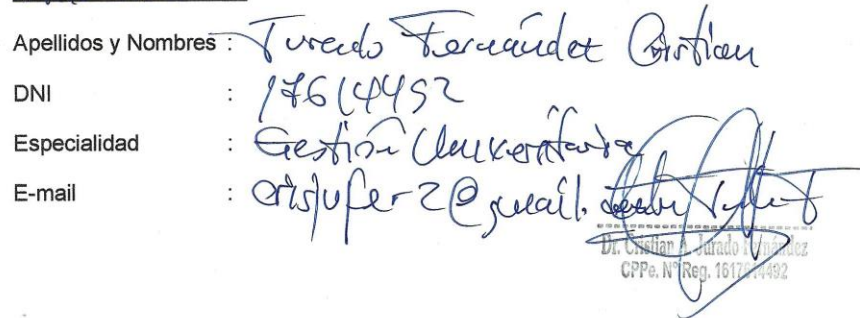 Apellidos y Nombres : Jurado Fernández Cristian
DNI : 17614492
Especialidad : Gestión Universitaria
E-mail : crisjufer2@gmail.
Dr. Cristian A. Jurado Fernández
CPPe. N° Reg. 1617614492